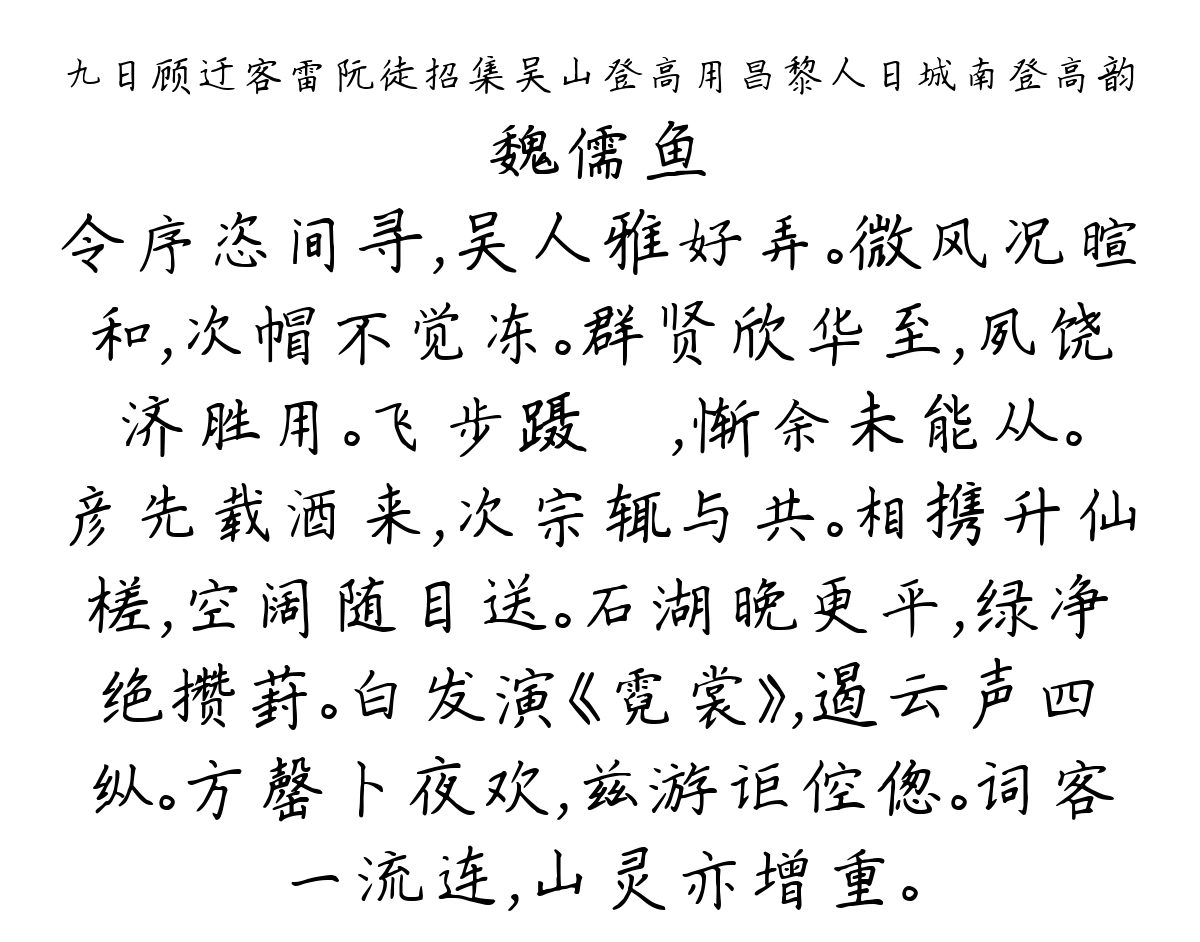 九日顾迁客雷阮徒招集吴山登高用昌黎人日城南登高韵
魏儒鱼
令序恣间寻,吴人雅好弄。微风况暄
和,次帽不觉冻。群贤欣华至,夙饶
济胜用。飞步蹑 ,惭余未能从。
彦先载酒来,次宗辄与共。相携升仙
槎,空阔随目送。石湖晚更平,绿净
绝攒葑。白发演《霓裳》,遏云声四
纵。方罄卜夜欢,兹游讵倥偬。词客
一流连,山灵亦增重。